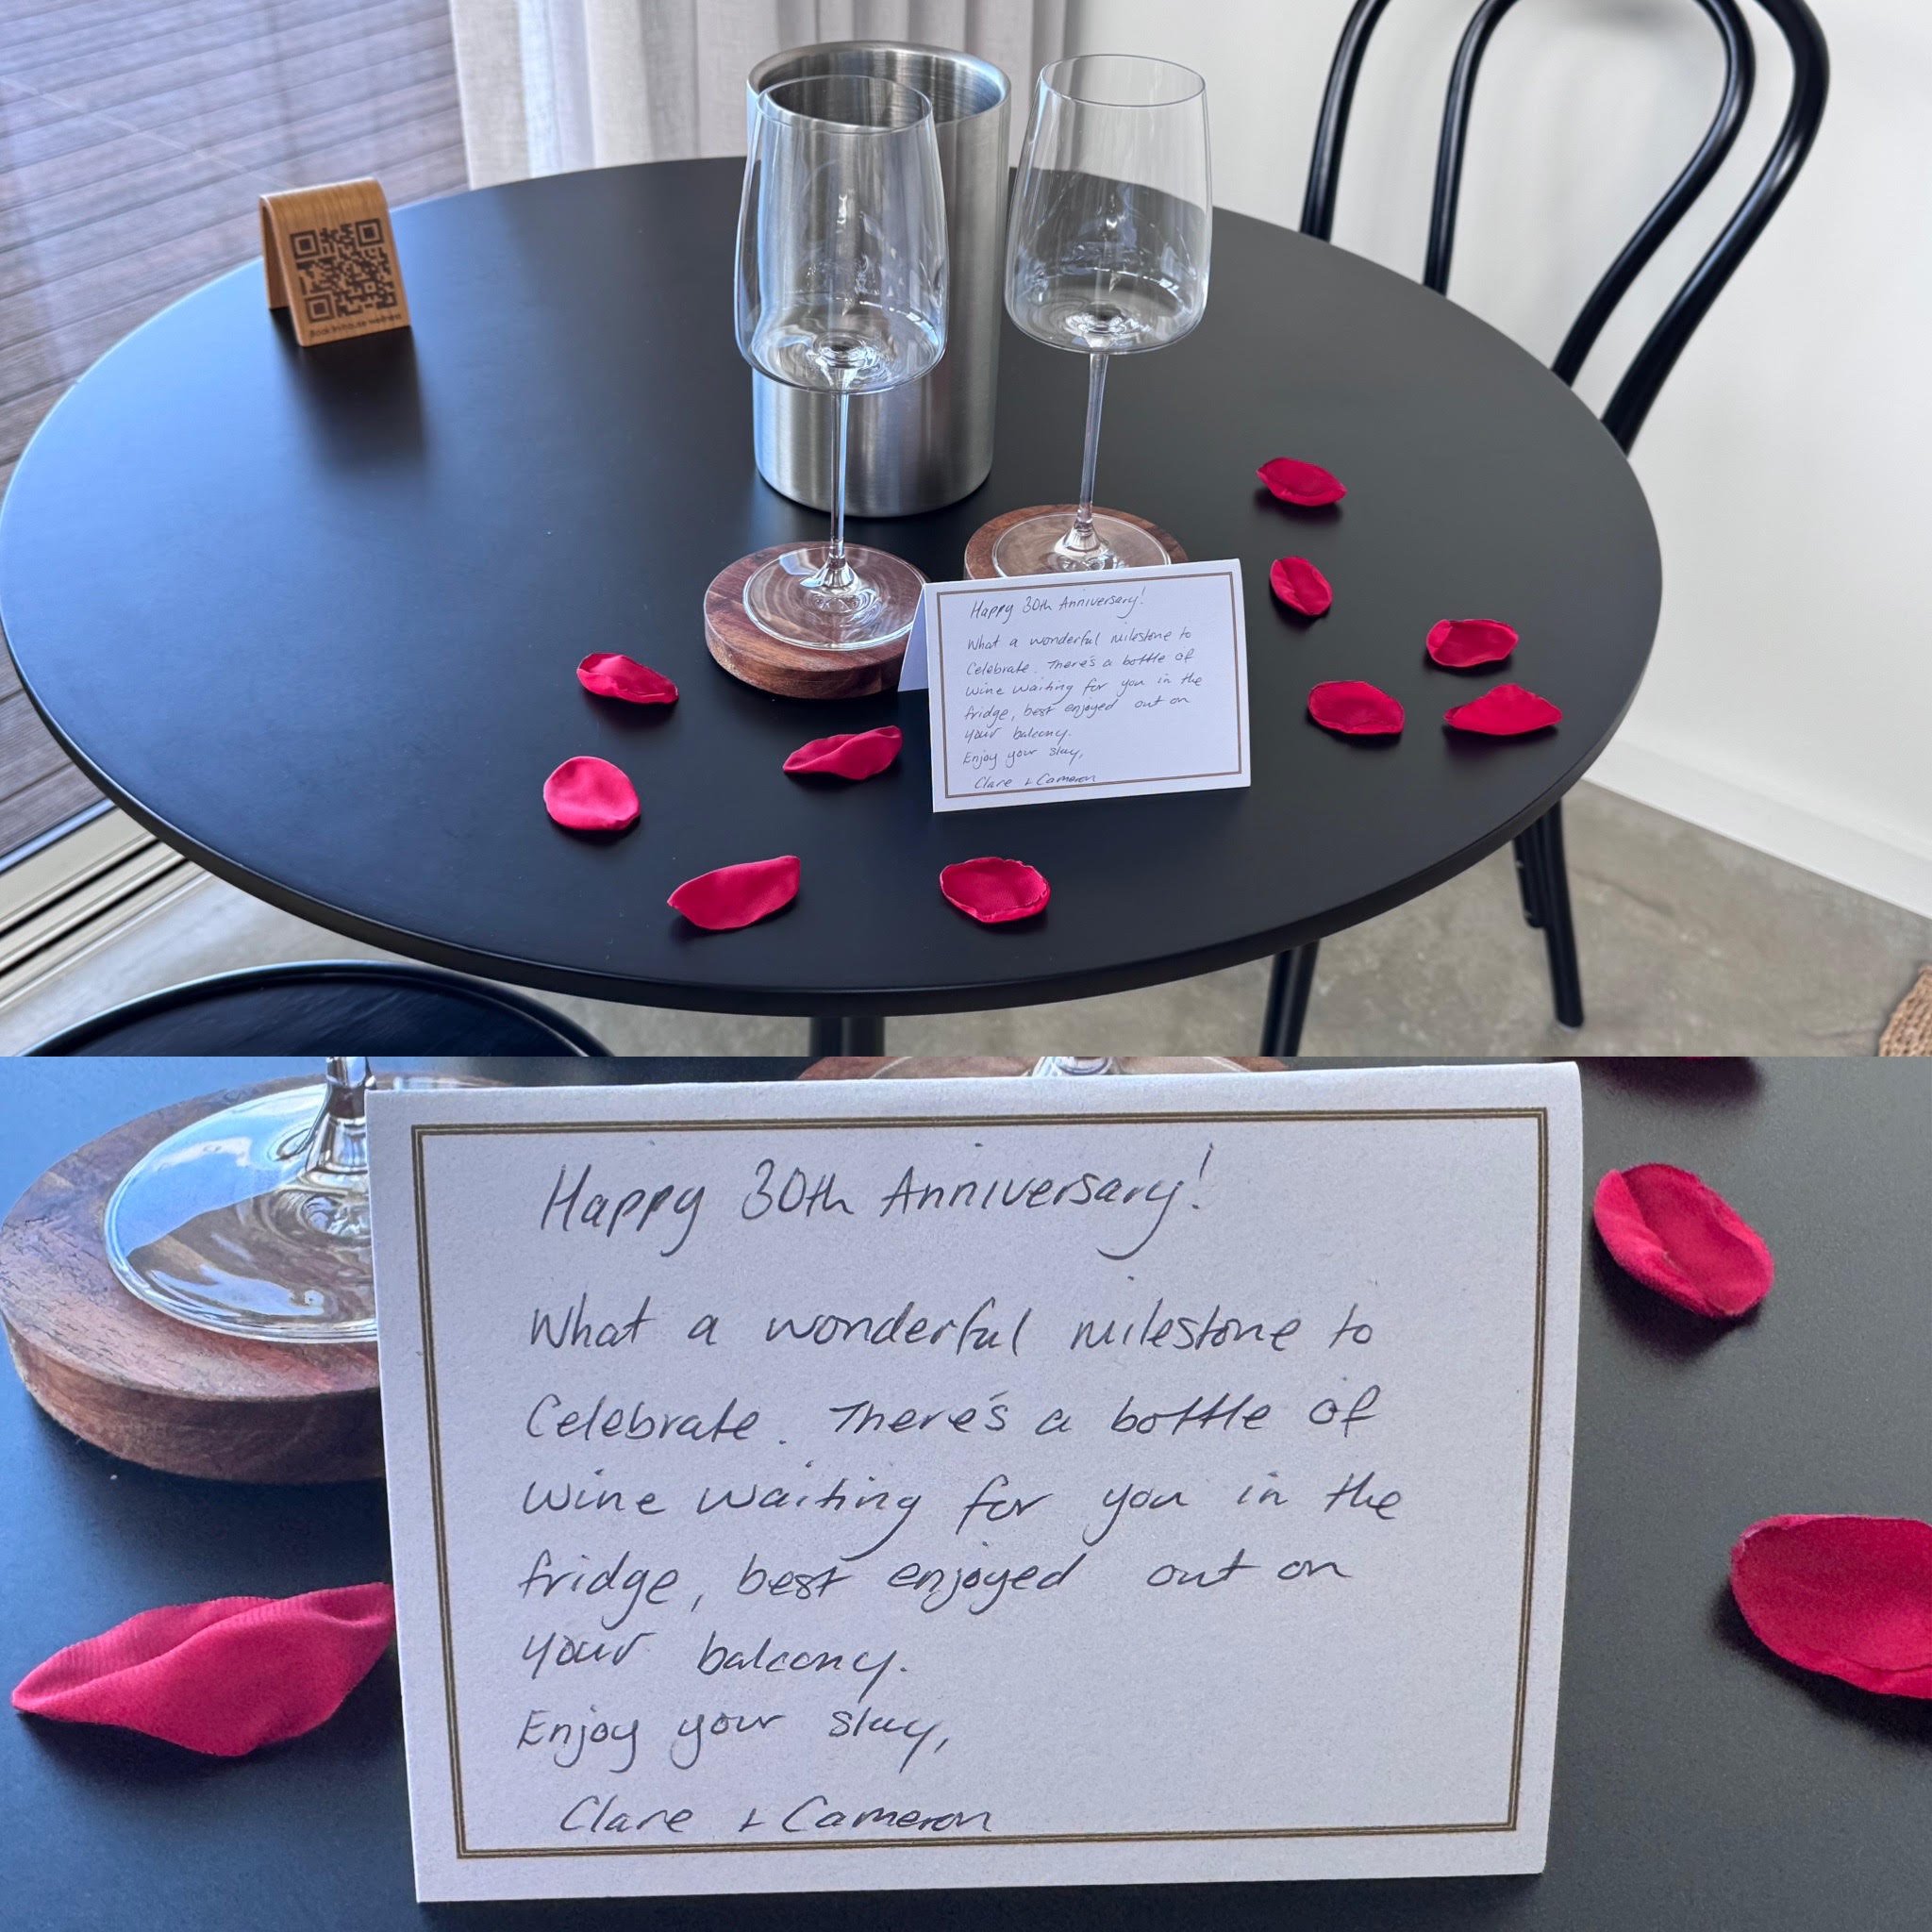 Book in-house wellness
Happy 30th Anniversary!
What a wonderful milestone to
Celebrate. There's a bottle of
wine waiting for you in the
fridge, best enjoyed out on
your balcony.
Enjoy your stay,
Clare + Cameron
Happy 30th Anniversary!
What a wonderful milestone to
Celebrate. There's a bottle of
wine waiting for you in the
fridge, best enjoyed out on
your balcony.
Enjoy your stay,
Clare + Cameron